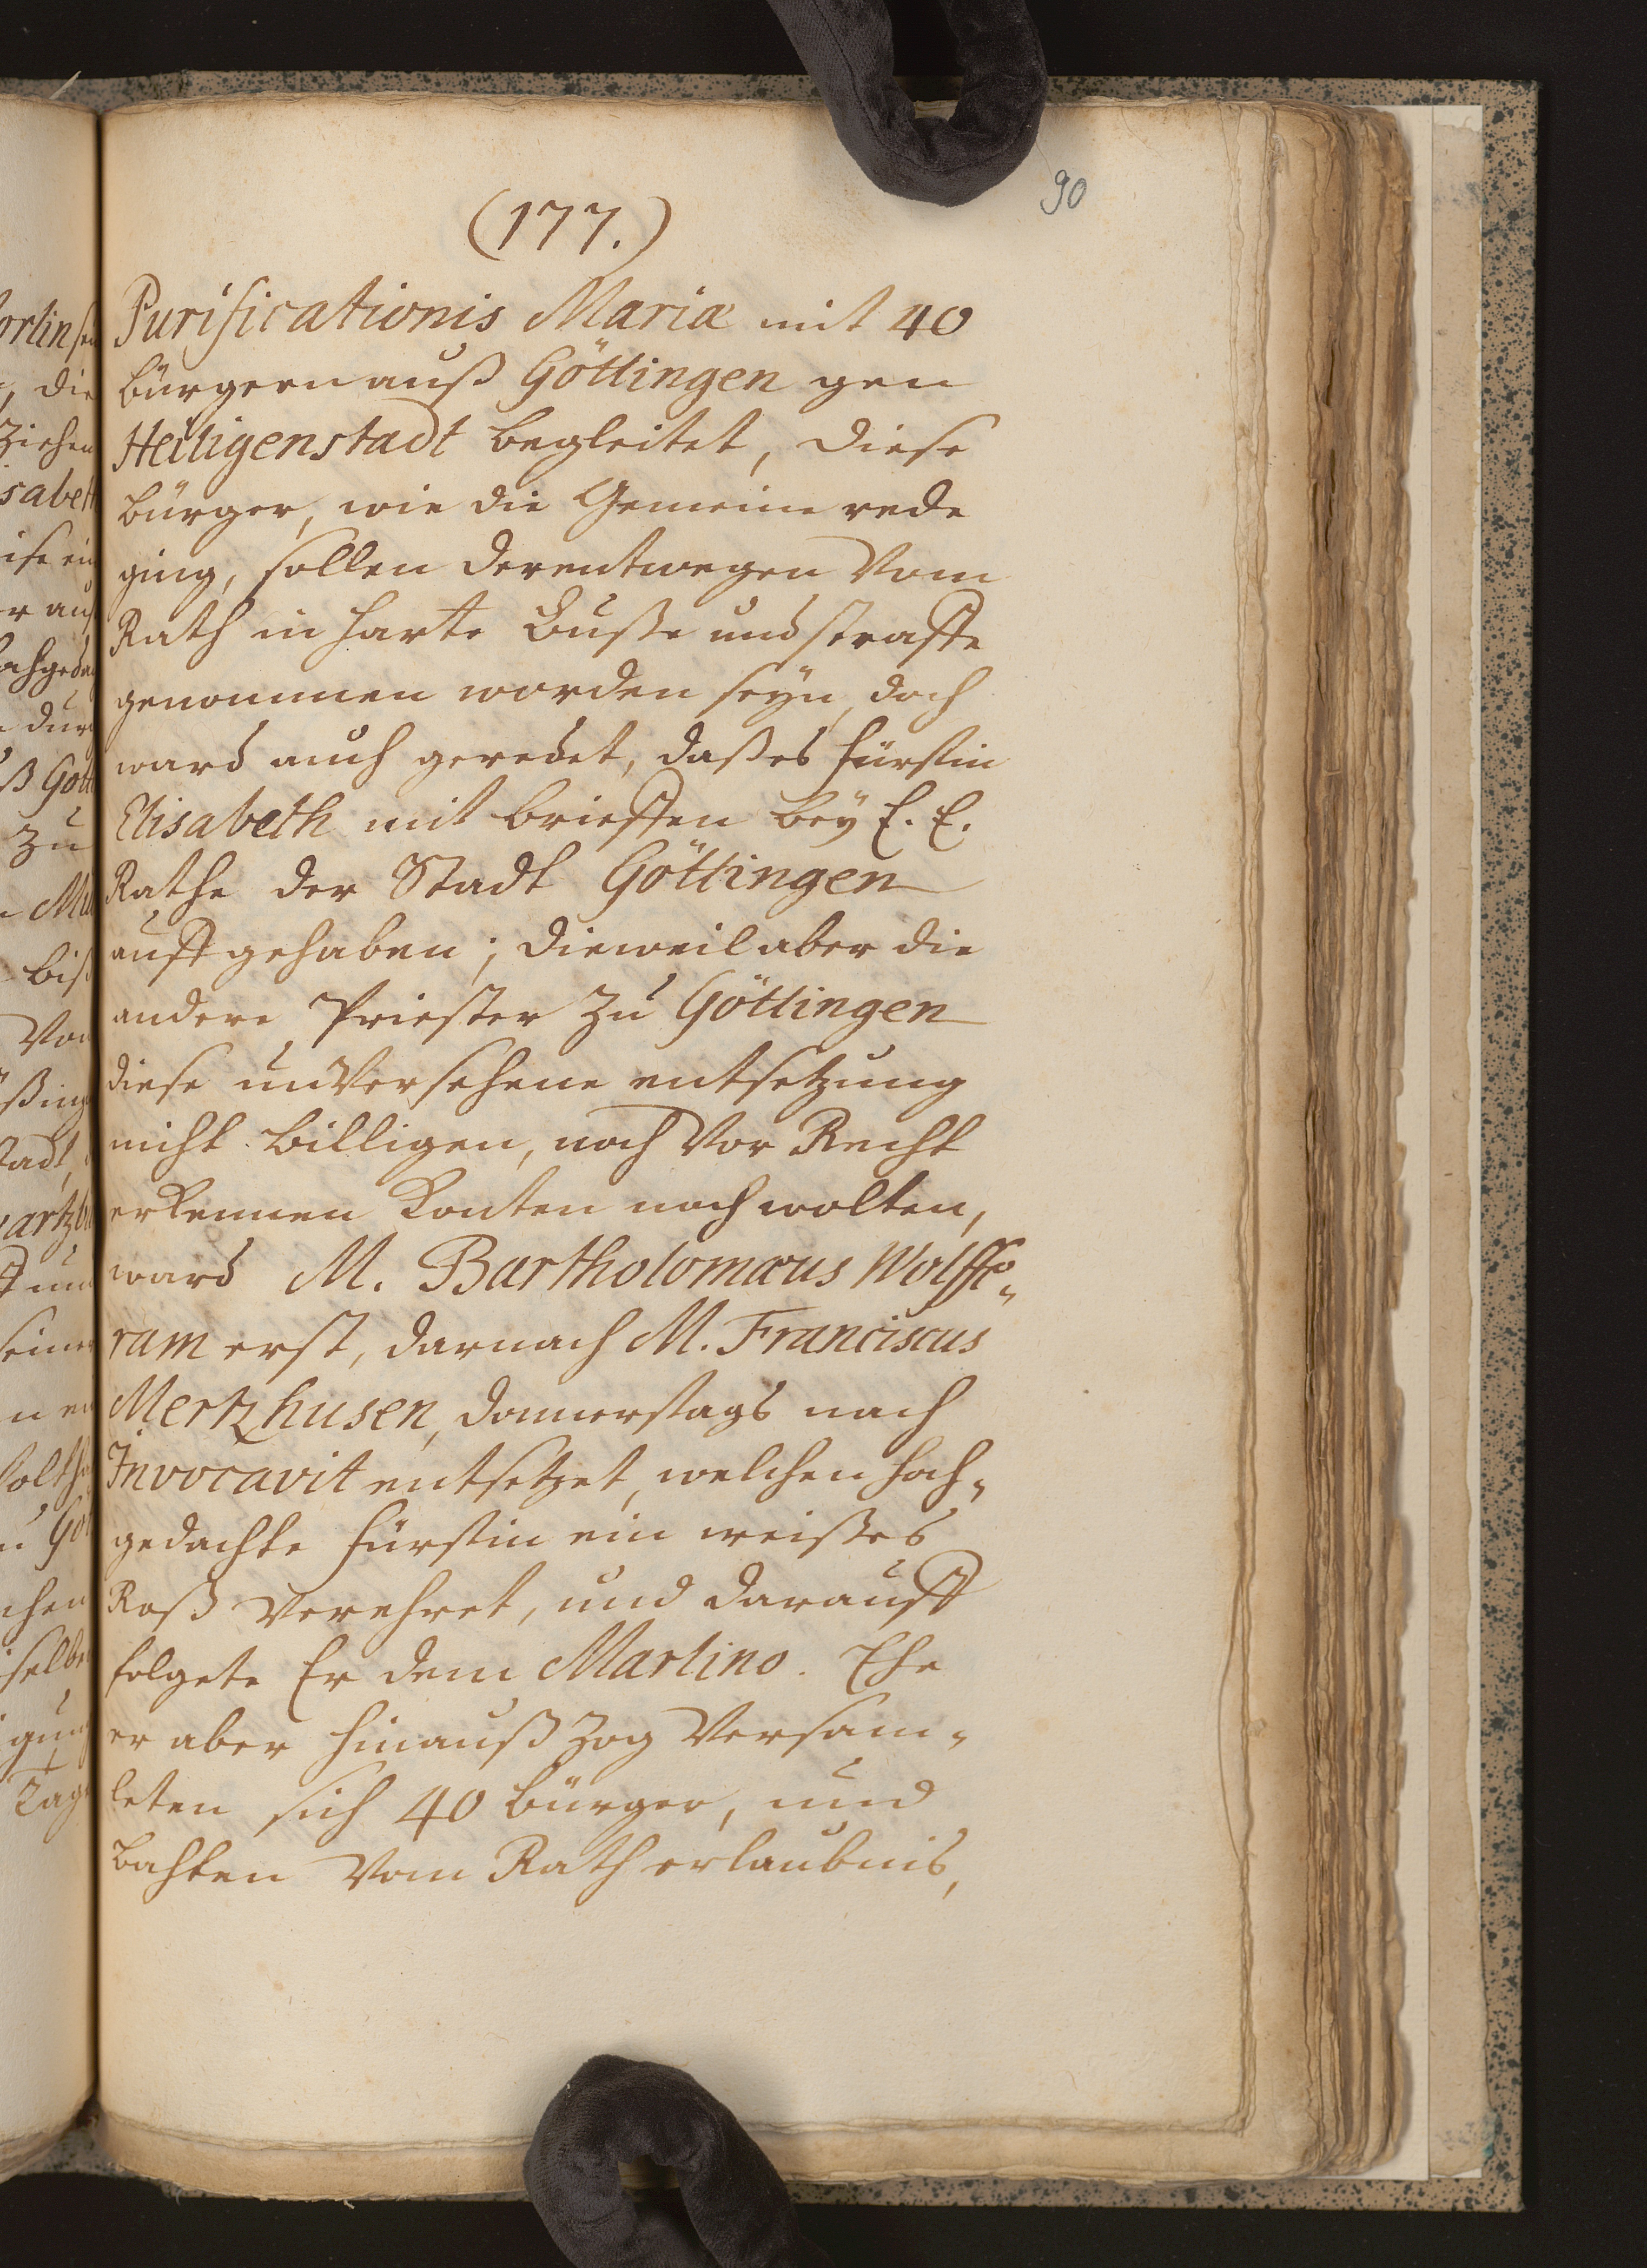 90
(177.)
Purificationis Mariæ mit 40
bürgern auß Göttingen gen
Heiligenstadt begleitet, diese
bürger, wie die Gemeine rede
ging, sollen derentwegen Vom
Rath in harte Buße und straffe
genommen worden seÿn, doch
ward auch geredet, daß es fürstin
Elisabeth mit brieffen beÿ E. E.
Rathe der Stadt Göttingen
auffgehaben; dieweil aber die
andere Priester zu Göttingen
diese unVersehene entsetzung
nicht billigen, noch Vor Recht
erkennen konten noch wolten,
ward M. Bartholomæus Wolffe„
ram erst, darnach M. Franciscus
Mertzhusen, donnerstags nach
Invocavit entsetzet, welchen hoch„
gedachte fürstin ein weißes
Roß Verehret, und darauff
folgete Er dem Martino. Ehe
er aber hinauß zog Versam„
leten sich 40 bürger, und
bahten Vom Rath erlaubnis,